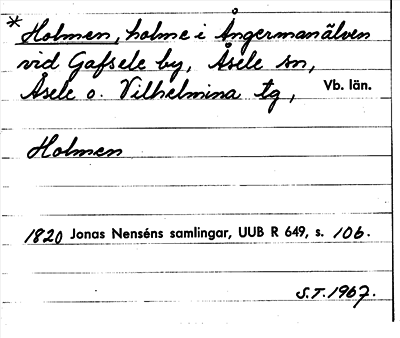 * Holmen, holme i Ångermanälven
vid Gafsele by, Åsele sn,
Åsele o. Vilhelmina tg, Vb. län.
Holmen
1820 Jonas Nenséns samlingar, UUB R 649, s. 106.
S.T. 1967.